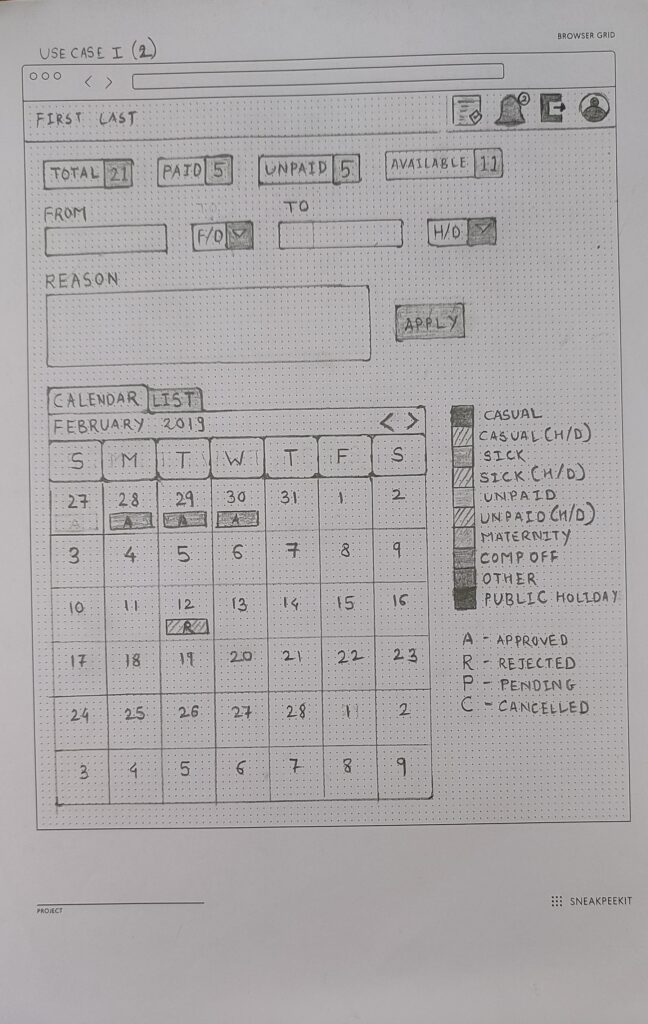 BROWSER GRID
USE CASE I (2)
FIRST LAST
2
TOTAL 21 PAID 5 UNPAID 5 AVAILABLE 11
FROM TO
F/D H/D
REASON
APPLY
CALENDAR LIST
FEBRUARY 2019
S M T W T F S
27 28 29 30 31 1 2
A A A A
3 4 5 6 7 8 9
10 11 12 13 14 15 16
R
17 18 19 20 21 22 23
24 25 26 27 28 1 2
3 4 5 6 7 8 9
CASUAL
CASUAL (H/D)
SICK
SICK (H/D)
UNPAID
UNPAID (H/D)
MATERNITY
COMP OFF
OTHER
PUBLIC HOLIDAY
A - APPROVED
R - REJECTED
P - PENDING
C - CANCELLED
PROJECT
SNEAKPEEKIT